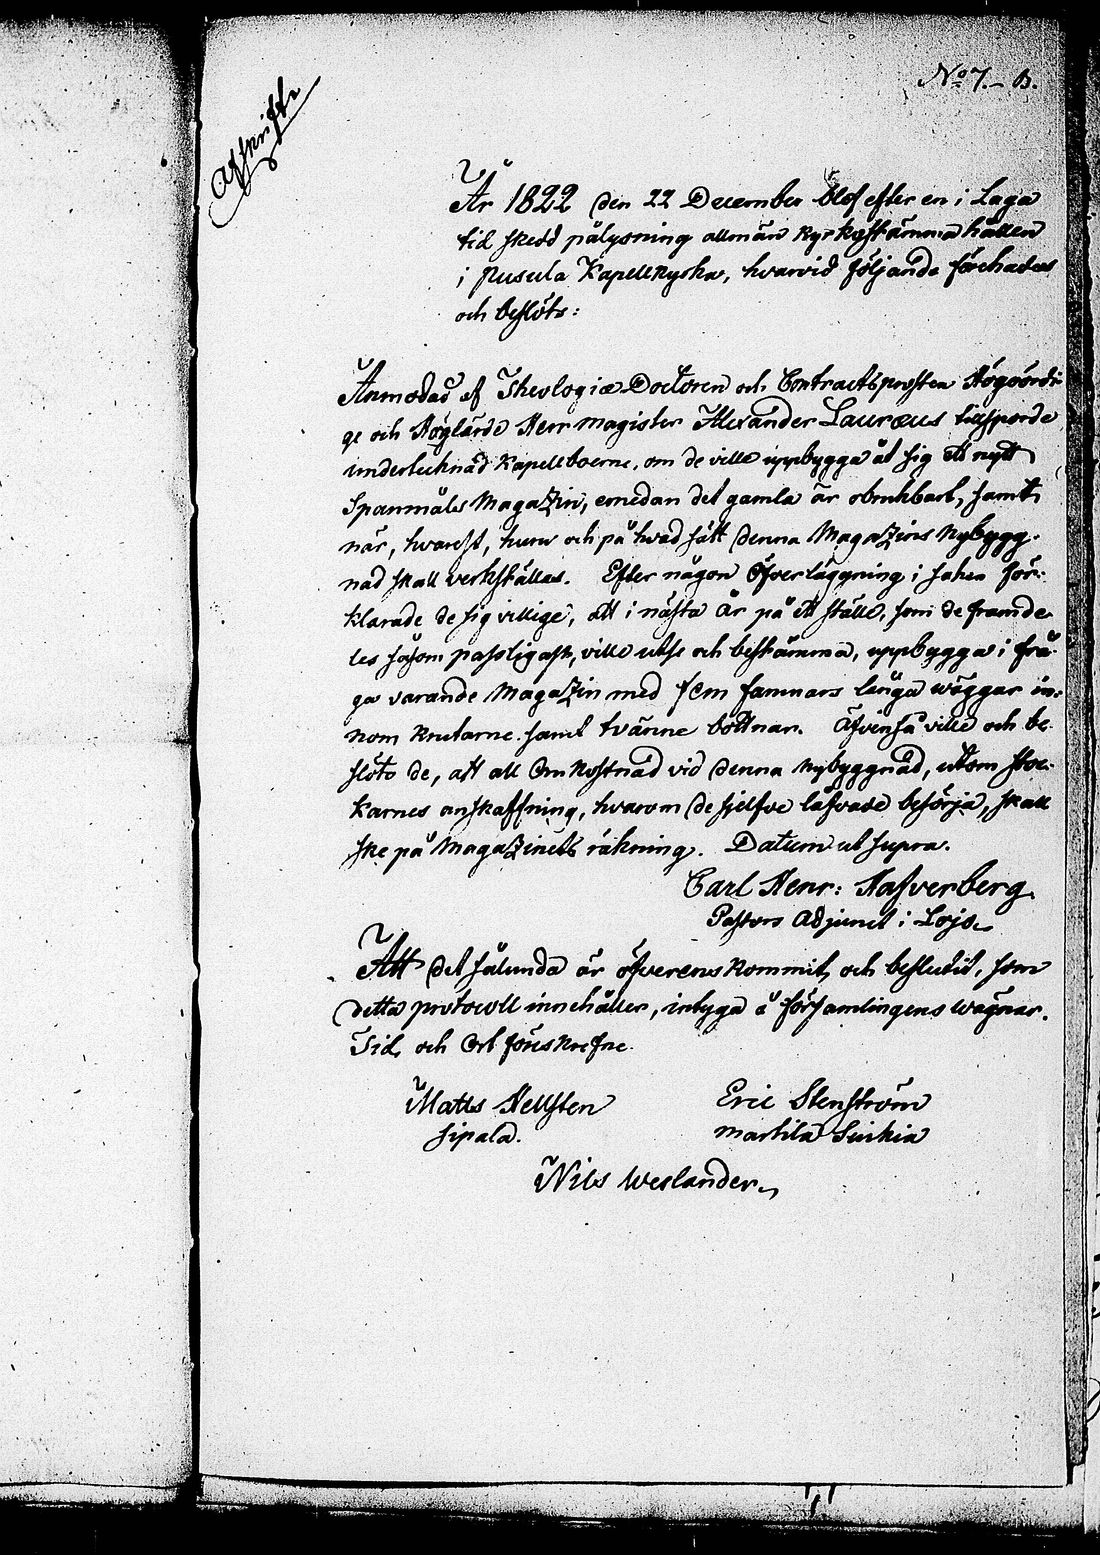 No 7. - B.
Afskrift
År 1822 den 22 December blef efter en i Laga
tid skedd pålysning allmän Kyrkostämma hållen
i Pusula Kapellkyrka, hvarvid följande förehades
och beslöts:
Anmodad af Theologiæ Doctoren och Contractsprosten Högvördi-
ge och Höglärde Herr Magister Alexander Lauræus tillsporde
undertecknad Kapellboerne, om de ville uppbygga åt sig ett nytt
Spanmåls Magazin, emedan det gamla är obrukbart, samt
när, hvarest, huru och på hvad sätt denna Magazins Nybygg-
nad skall verkställas. Efter någon Öfverläggning i saken för-
klarade de sig villige, att i nästa år på ett ställe, som de framde-
les såsom passligast, ville utse och bestämma, uppbygga i frå-
ga varande Magazin med fem famnars långa väggar in-
nom knutarne samt tvänne bottnar. Äfvenså ville och be-
slöto de, att all Omkostnad vid denna Nybyggnad, utom stoc-
karnes anskaffning, hvarom de sjelfve låfvade besörja, skall
ske på Magazinets räkning. Datum ut supra.
Carl Henr: Hafverberg
Pastors Adjunct i Lojo
Att det sålunda är öfverenskommit och beslutit, som
detta protocoll innehåller, intyga å församlingens wägnar.
Tid och Ort föreskrefne
Matts Hellsten
Sipala.
Eric Stenström
Martila Suikia
Nils Weslander